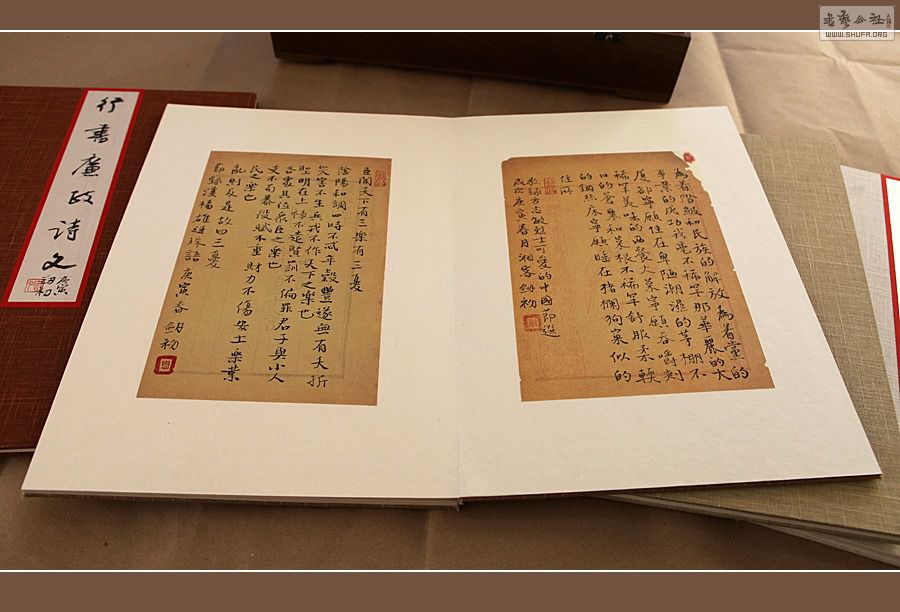 書藝公社
WWW.SHUFA.ORG
行書廉政诗文
庚寅
劍初
為着階級和民族的解放為着黨的
事業的成功我毫不稀罕那華麗的大
廈卻寧願住在卑陋潮濕的茅棚不
稀罕美味的西餐大菜寧願吞嚼刺
口的苞粟和菜根不稀罕舒服柔軟
的鋼絲床寧願睡在猪欄狗窠似的
住所
敬録方志敏烈士可愛的中國節選
歲次庚寅春月湘客劍初
臣聞天下有三樂有三憂
陰陽和調四時不忒年穀豐遂無有夭折
災害不生兵戎不作天下之樂也
聖明在上祿不遺賢罰不偏罪君子與小人
各處其位衆臣之樂也
吏不苟暴役賦不重財力不傷安土樂業
民之樂也
亂則反是故曰三憂
節録漢楊雄連珠語 庚寅春 劍初